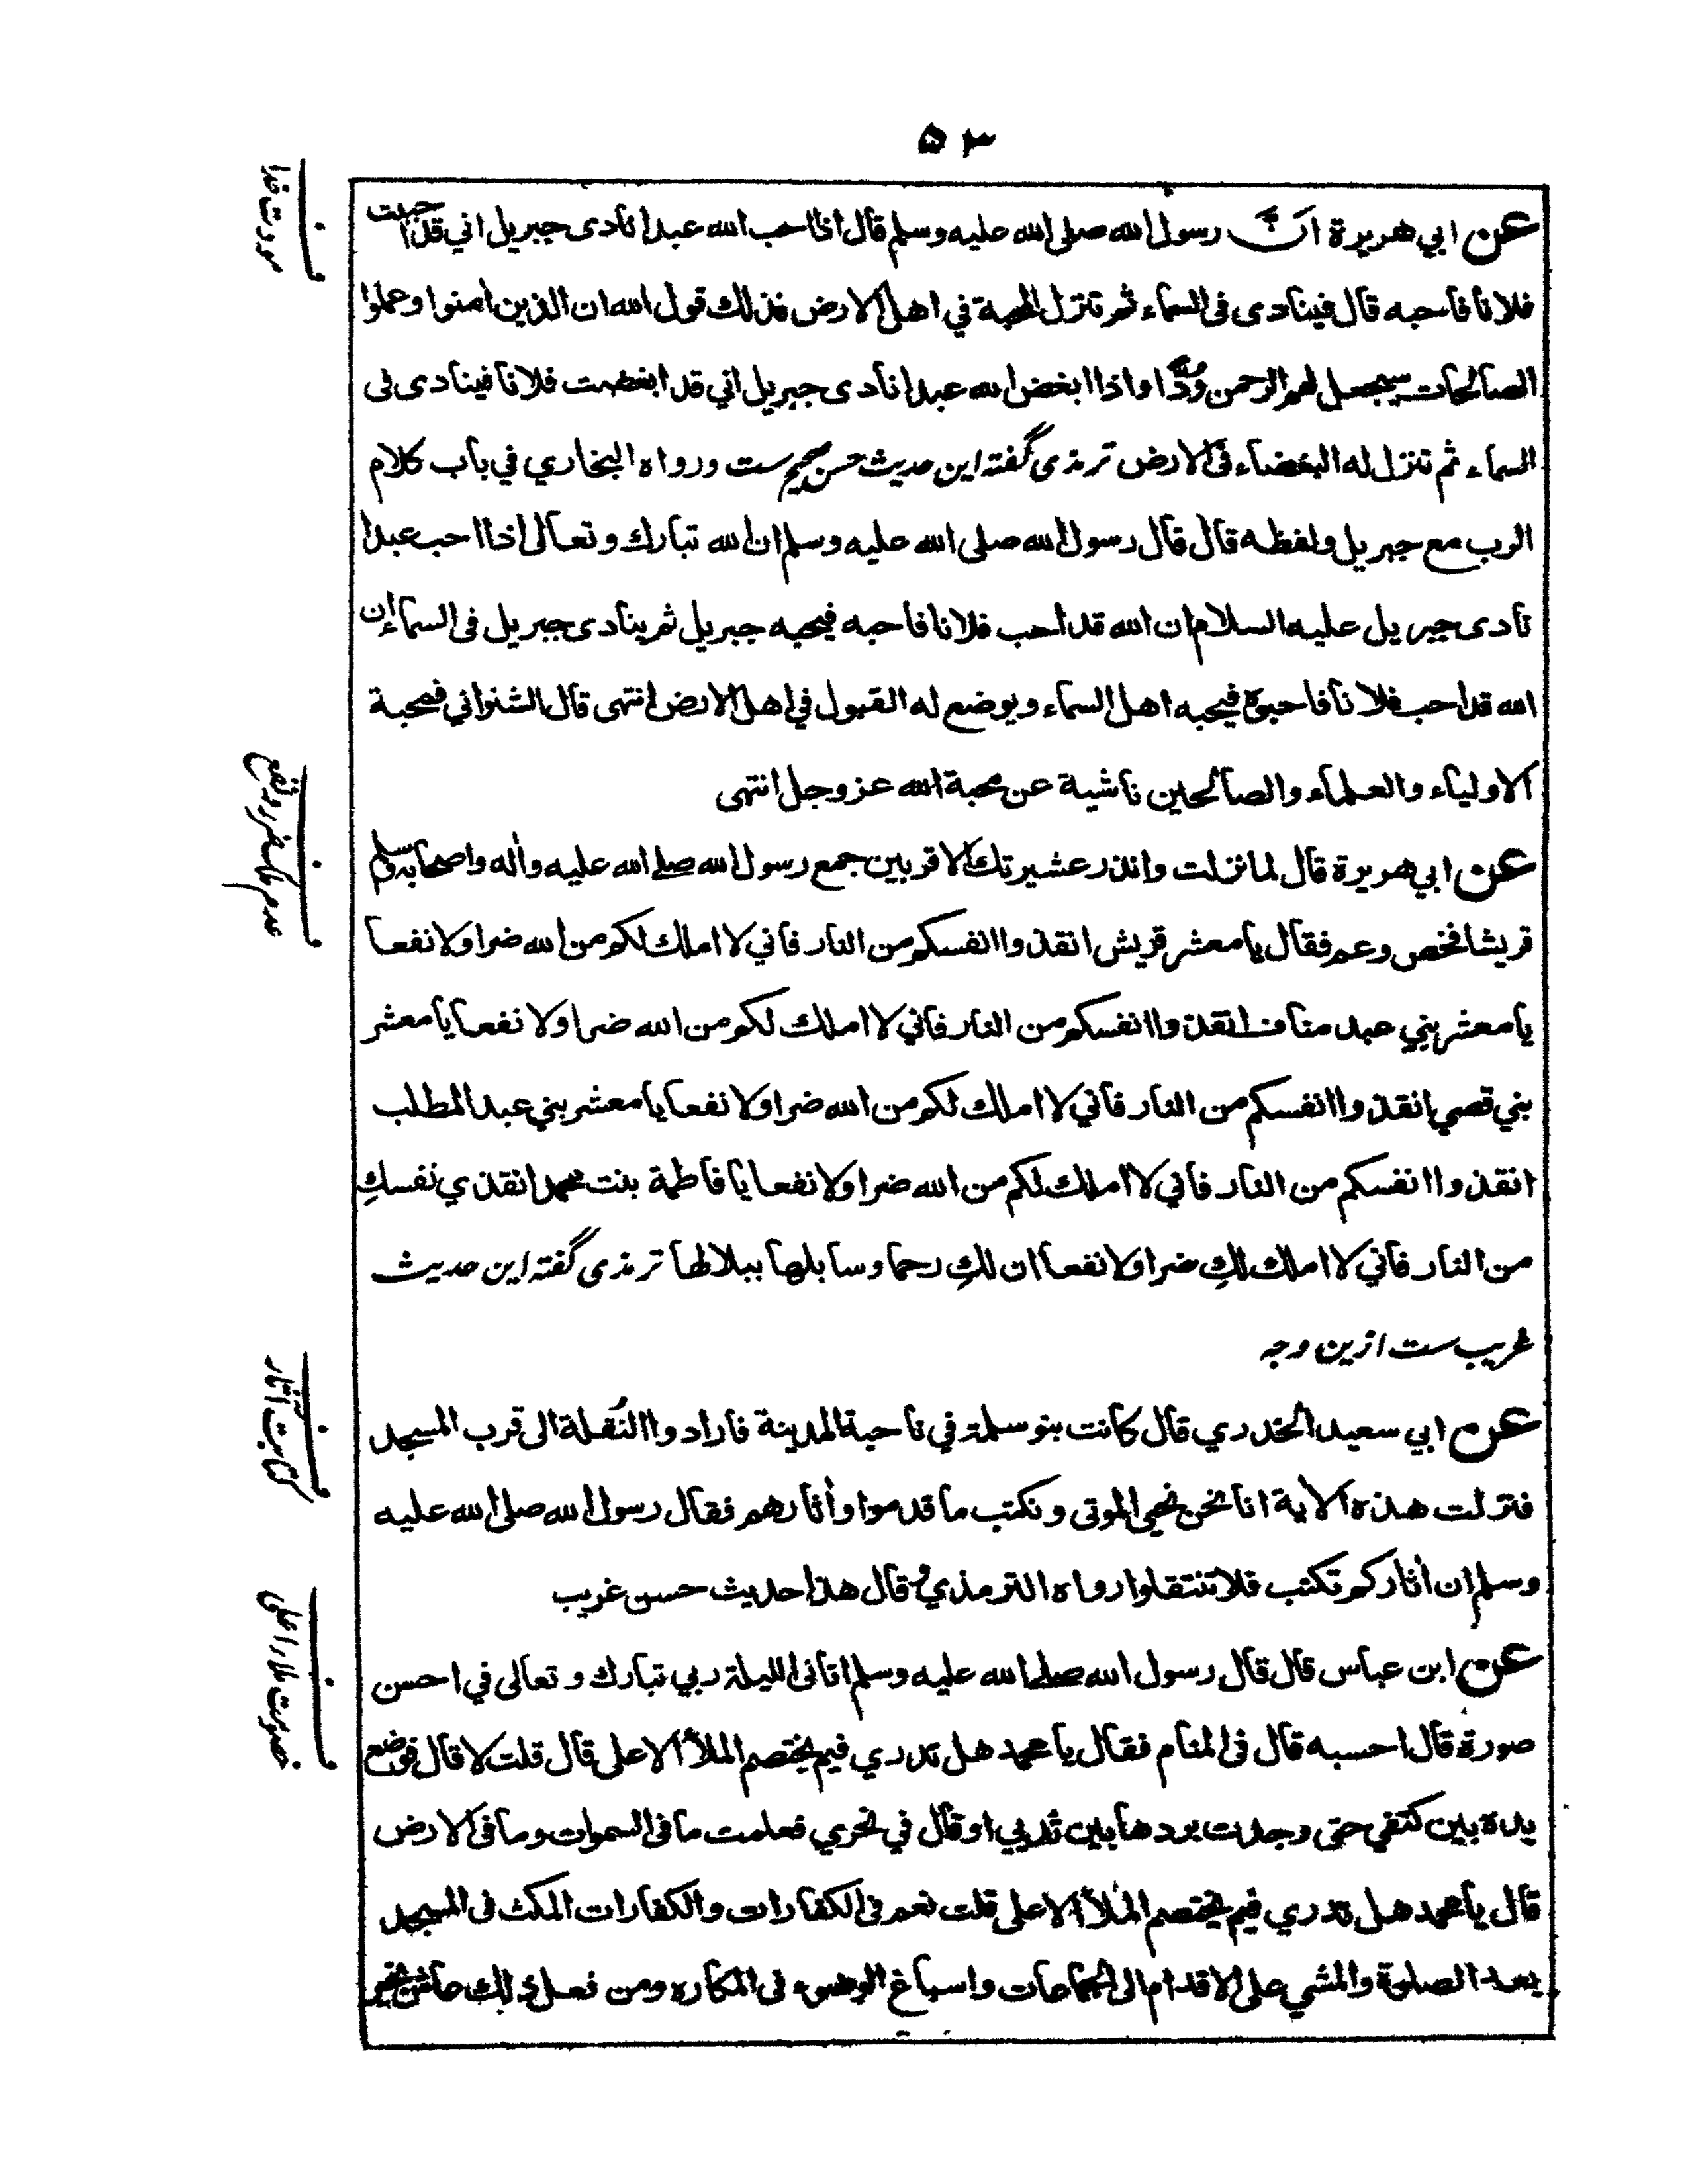 ۵۳
عن ابي هريرة ان رسول الله صلى الله عليه وسلم قال اذا احب الله عبدا نادى جبريل اني قد احببت
فلانا فاحبه قال فينادى فى السماء ثم تنزل المحبة في اهل الارض فذلك قول الله ان الذين امنوا وعملوا
الصالحات سيجعل لهم الرحمن وُدًّا واذا ابغض الله عبدا نادى جبريل اني قد ابغضت فلانا فينادى فى
السماء ثم تنزل له البغضاء فى الارض ترمذى گفته اين حديث حسن صحيح ست ورواه البخاري في باب كلام
الرب مع جبريل ولفظه قال قال رسول الله صلى الله عليه وسلم ان الله تبارك وتعالى اذا احب عبدا
نادى جبريل عليه السلام ان الله قد احب فلانا فاحبه فيحبه جبريل ثم ينادى جبريل فى السماء ان
الله قد احب فلانا فاحبوه فيحبه اهل السماء ويوضع له القبول في اهل الارض انتهى قال الشنواني فمحبة
الاولياء والعلماء والصالحين ناشية عن محبة الله عز وجل انتهى
عن ابي هريرة قال لما نزلت وانذر عشيرتك الاقربين جمع رسول الله صلے الله عليه واٰله واصحابه وسلم
قريشا فخص وعم فقال يا معشر قريش انقذوا انفسكم من النار فاني لا املك لكم من الله ضرا ولا نفعا
يا معشر بني عبد مناف انقذوا انفسكم من النار فاني لا املك لكم من الله ضرا ولا نفعا يا معشر
بني قصي انقذوا انفسكم من النار فاني لا املك لكم من الله ضرا ولا نفعا يا معشر بني عبد المطلب
انقذوا انفسكم من النار فاني لا املك لكم من الله ضرا ولا نفعا يا فاطمة بنت محمد انقذي نفسكِ
من النار فاني لا املك لكِ ضرا ولا نفعا ان لكِ رحما وسابلها ببلالها ترمذى گفته اين حديث
غريب ست ازين وجه
عن ابي سعيد الخدري قال كانت بنو سلمة في ناحية المدينة فارادوا النُقلة الى قرب المسجد
فنزلت هذه الاية انا نحن نحيى الموتى ونكتب ما قدموا واٰثارهم فقال رسول الله صلى الله عليه
وسلم ان اٰثاركم تكتب فلا تنتقلوا رواه الترمذي وقال هذا حديث حسن غريب
عن ابن عباس قال قال رسول الله صلے الله عليه وسلم اتانى الليلة ربي تبارك وتعالى في احسن
صورة قال احسبه قال فى المنام فقال يا محمد هل تدري فيم يختصم الملأ الاعلى قال قلت لا قال فوضع
يده بين كتفي حتى وجدت بردها بين ثديي او قال في نحري فعلمت ما فى السموات وما فى الارض
قال يا محمد هل تدري فيم يختصم الملأ الاعلى قلت نعم فى الكفارات والكفارات المكث فى المسجد
بعد الصلوة والمشي على الاقدام الى الجماعات واسباغ الوضوء فى المكاره ومن فعل ذلك عاش بخير
ف مودت خدا
ف عدم ملك ضرر ونفع
ف كتابت آثار
ف خصومت ملأ اعلى